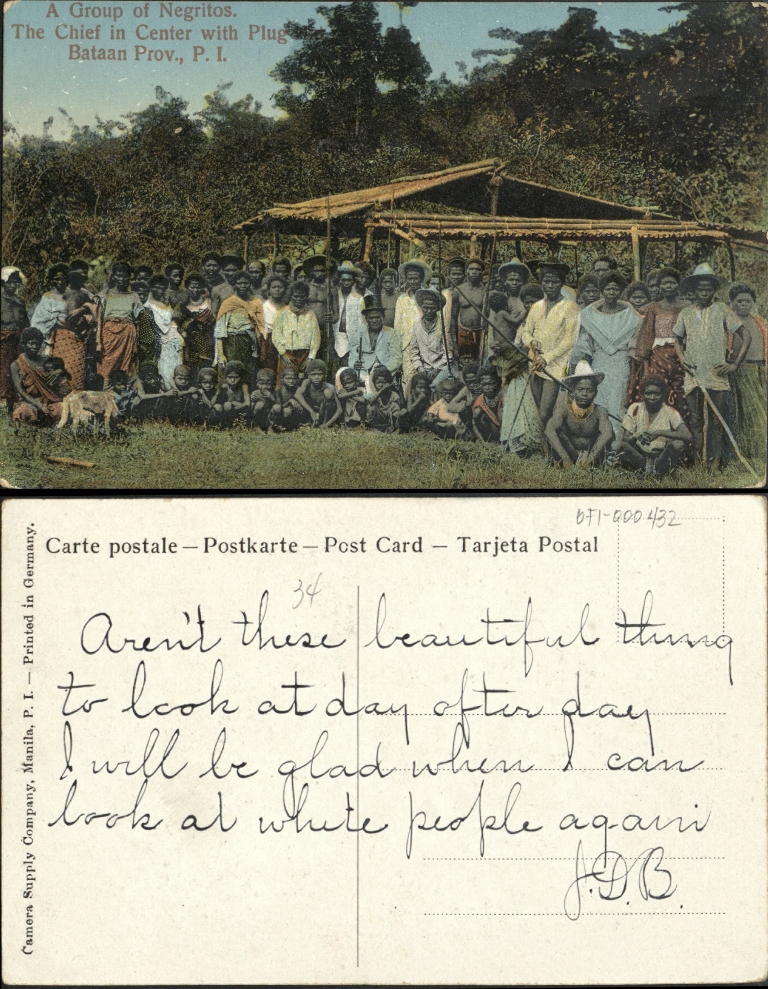 A Group of Negritos.
The Chief in Center with Plug
Bataan Prov., P. I.
Carte postale — Postkarte — Post Card — Tarjeta Postal
OFI-000432
34
Camera Supply Company, Manila, P. I. — Printed in Germany.
Aren't these beautiful thing
to look at day after day
I will be glad when I can
look at white people again
J.D.B.